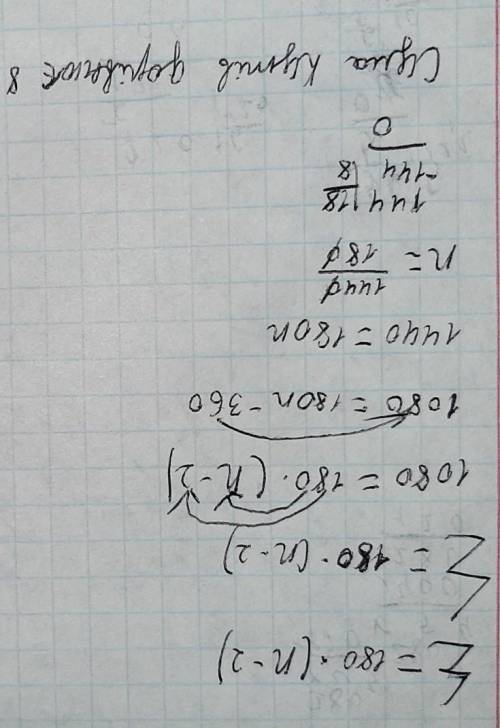 Σ = 180 · (n - 2)
Σ = 180 · (n - 2)
1080 = 180 · (n - 2)
1080 = 180n - 360
1440 = 180n
n = 1440/180
144 | 18
-144 | 8
0
Сума кутів дорівнює 8